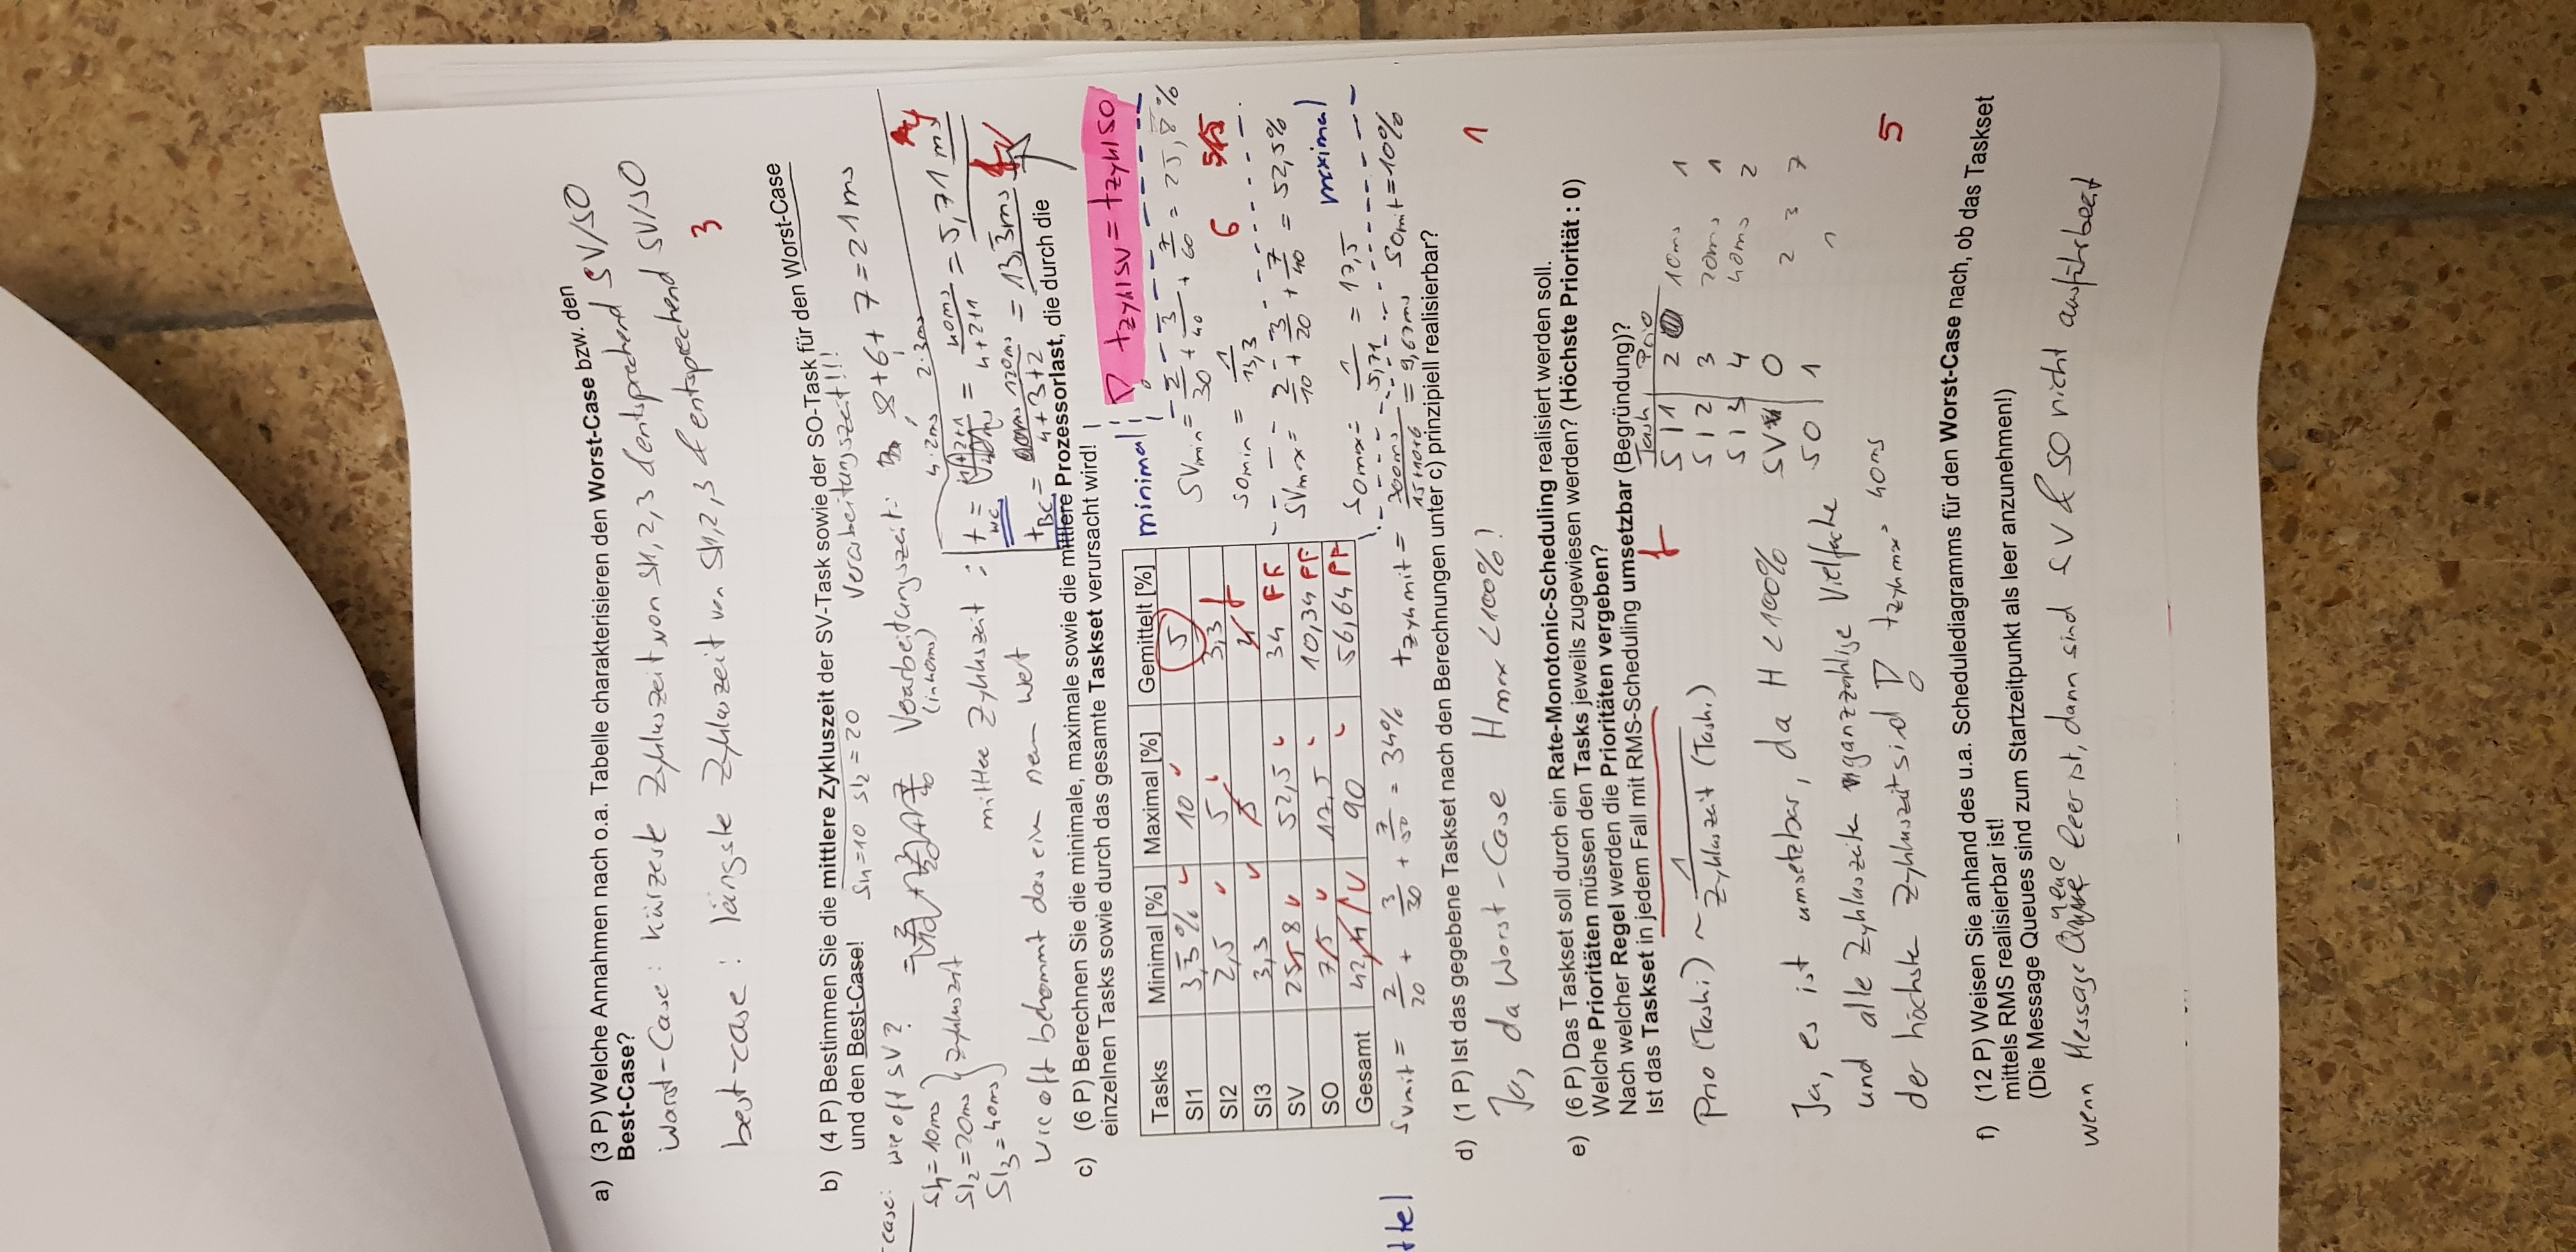 a) (3 P) Welche Annahmen nach o.a. Tabelle charakterisieren den Worst-Case bzw. den
Best-Case?
Worst-Case: kürzeste Zykluszeit von SI1,2,3 & entsprechend SV/SO
best-case: längste Zykluszeit von SI1,2,3 & entsprechend SV/SO
3
b) (4 P) Bestimmen Sie die mittlere Zykluszeit der SV-Task sowie der SO-Task für den Worst-Case
und den Best-Case!
SI1=10 SI2=20
Verarbeitungszeit!!!
case: wie oft SV?
Verarbeitungszeit: 8+6+7=21ms
(in 40ms)
4·2ms 2·3ms
SI1=10ms
SI2=20ms } Zykluszeit
SI3=40ms
mittlere Zykluszeit : t WC = = 40ms / 4+2+1 = 5,71 ms
wie oft bekommt das ein neuen Wert
t BC = 120ms / 4+3+2 = 13,3ms
c) (6 P) Berechnen Sie die minimale, maximale sowie die mittlere Prozessorlast, die durch die
einzelnen Tasks sowie durch das gesamte Taskset verursacht wird!
tzykl SV = tzykl SO
minimal
Tasks Minimal [%] Maximal [%] Gemittelt [%]
SI1 3,3% 10 5
SI2 2,5 5 3,3 f
SI3 3,3 5
SV 25,8 52,5 34 FF
SO 7,5 17,5 10,34 FF
Gesamt 42,4 90 56,64 FF
SVmin = 2/30 + 3/40 + 7/60 = 25,8%
SOmin = 1/13,3
6
SVmax = 2/10 + 3/20 + 7/40 = 52,5%
maximal
SOmax = 1/5,71 = 17,5
ttel
SVmit = 2/20 + 3/30 + 7/50 = 34%
tzykmit = 300ms / 15+10+6 = 9,67ms
SOmit = 10%
d) (1 P) Ist das gegebene Taskset nach den Berechnungen unter c) prinzipiell realisierbar?
Ja, da Worst-Case Hmax <100%!
1
e) (6 P) Das Taskset soll durch ein Rate-Monotonic-Scheduling realisiert werden soll.
Welche Prioritäten müssen den Tasks jeweils zugewiesen werden? (Höchste Priorität : 0)
Nach welcher Regel werden die Prioritäten vergeben?
Ist das Taskset in jedem Fall mit RMS-Scheduling umsetzbar (Begründung)?
f
Task Prio
SI1 2 10ms 1
SI2 3 20ms 1
SI3 4 40ms 2
SV 0 2 3 7
SO 1 1
Prio (Taski) ~ 1 / Zykluszeit (Taski)
Ja, es ist umsetzbar, da H <100%
und alle Zykluszeiten ganzzahlige Vielfache
der höchsten Zykluszeit sind ! tzykmax = 40ms
5
f) (12 P) Weisen Sie anhand des u.a. Schedulediagramms für den Worst-Case nach, ob das Taskset
mittels RMS realisierbar ist!
(Die Message Queues sind zum Startzeitpunkt als leer anzunehmen!)
wenn Message Queue leer ist, dann sind SV & SO nicht ausführbereit